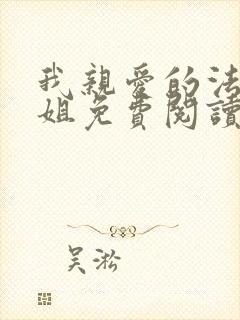 我親愛的法
姐免費閱讀
吳淞